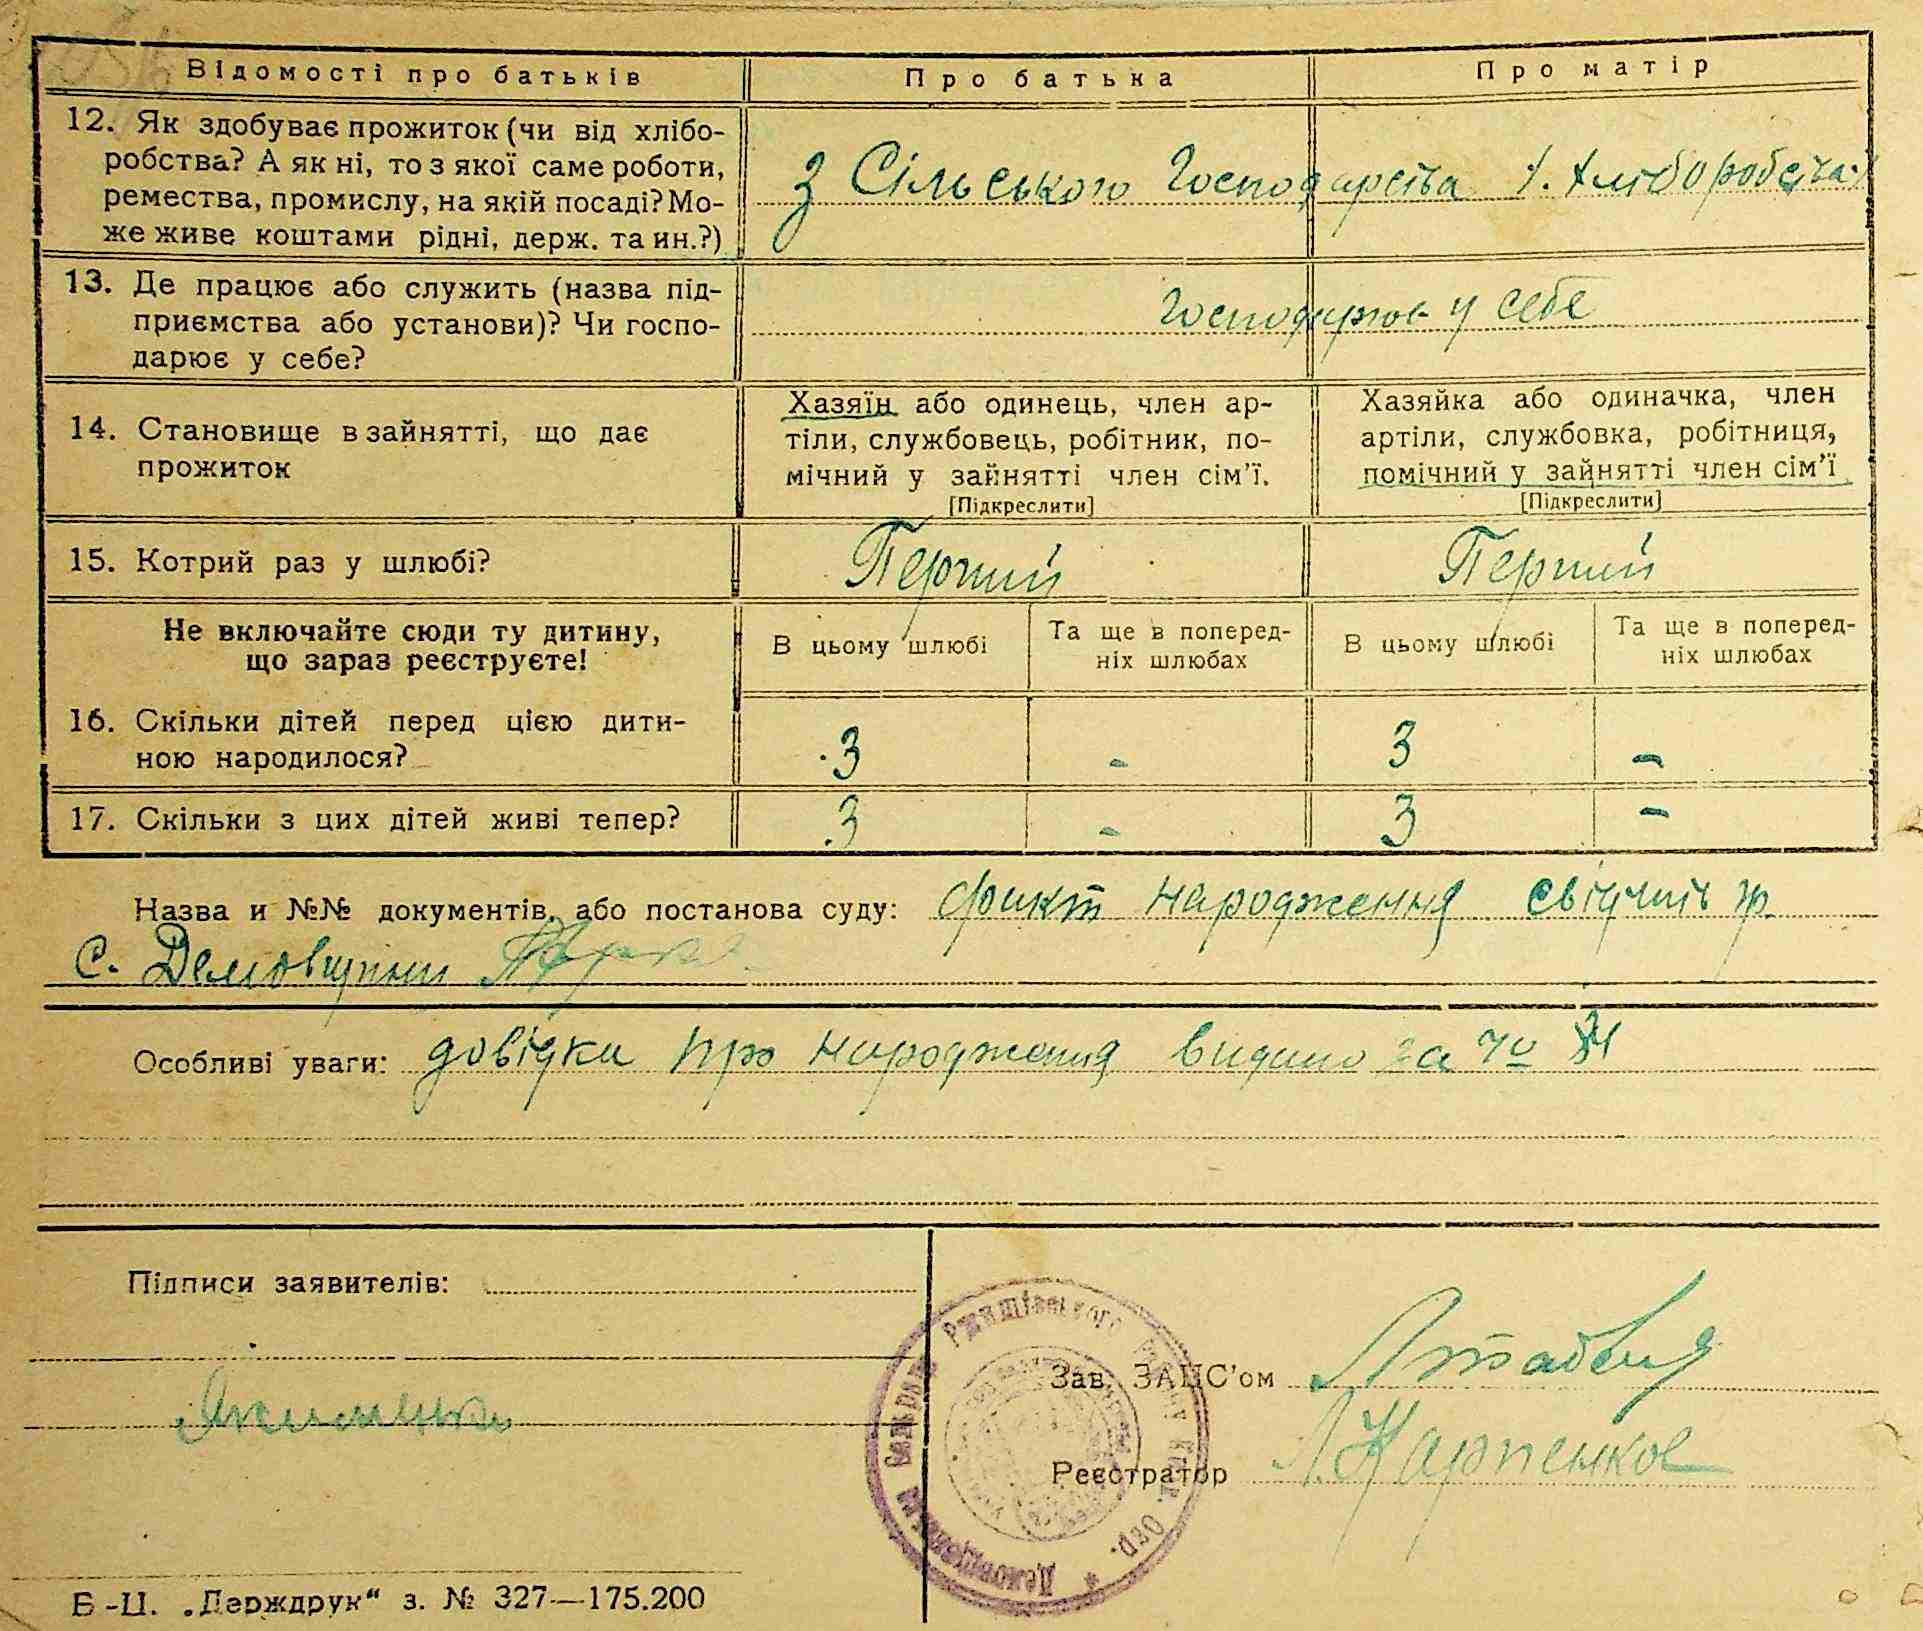 Відомості про батьків Про батька Про матір
12. Як здобуває прожиток (чи від хлібо-
робства? А як ні, то з якої саме роботи,
ремества, промислу, на якій посаді? Мо-
же живе коштами рідні, держ. та ин.?)
З Сільського Господарства
13. Де працює або служить (назва під-
приємства або установи)? Чи госпо-
дарює у себе?
у себе
14. Становище в зайнятті, що дає
прожиток
Хазяїн або одинець, член ар-
тіли, службовець, робітник, по-
мічний у зайнятті член сім'ї.
[Підкреслити]
Хазяйка або одиначка, член
артіли, службовка, робітниця,
помічний у зайнятті член сім'ї
[Підкреслити]
15. Котрий раз у шлюбі? Перший Перший
Не включайте сюди ту дитину,
що зараз реєструєте!
В цьому шлюбі
Та ще в поперед-
ніх шлюбах
В цьому шлюбі
Та ще в поперед-
ніх шлюбах
16. Скільки дітей перед цією дити-
ною народилося?
3 - 3 -
17. Скільки з цих дітей живі тепер? 3 - 3 -
Назва и №№ документів, або постанова суду: факт народження свідчить гр.
с. Демовщини
Особливі уваги: довідка про народження видано за №
Підписи заявителів:
Зав. ЗАЦС'ом
Реєстратор Л. Карпенко
Ржищівського
Б-Ц. „Держдрук“ з. № 327—175.200